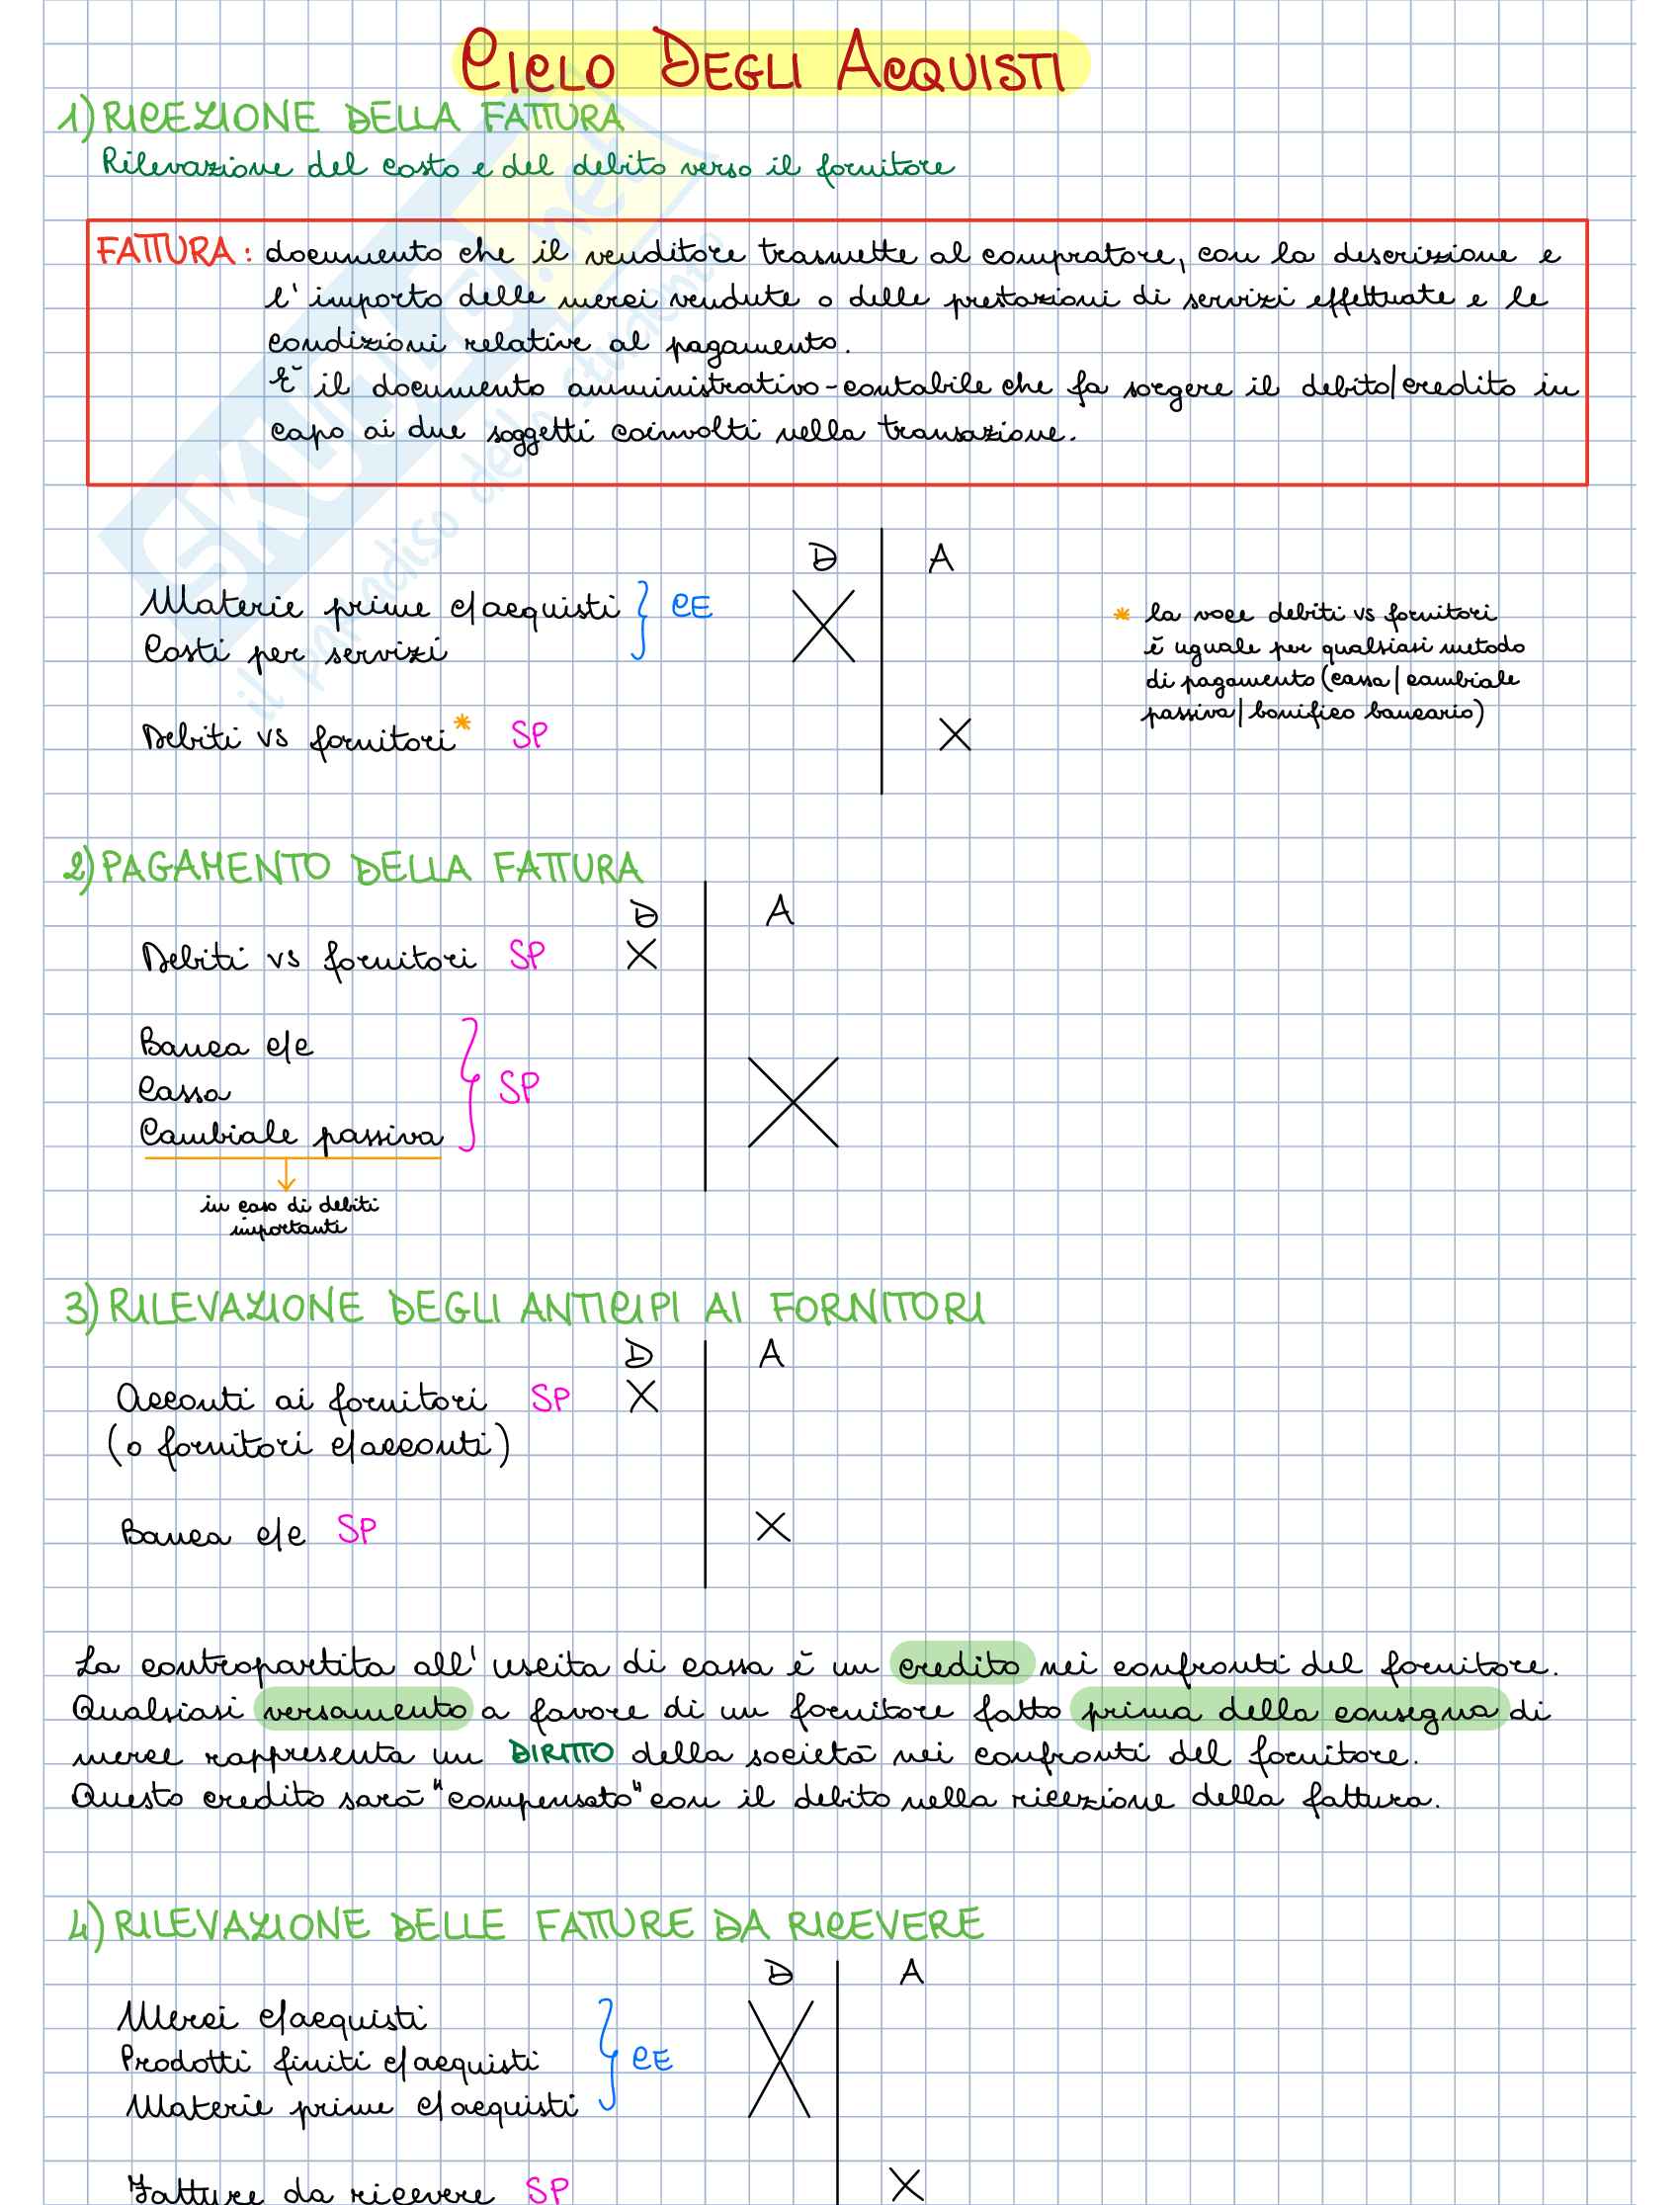 CICLO DEGLI ACQUISTI
1) RICEZIONE DELLA FATTURA
Rilevazione del costo e del debito verso il fornitore
FATTURA: documento che il venditore trasmette al compratore, con la descrizione e
l'importo delle merci vendute o delle prestazioni di servizi effettuate e le
condizioni relative al pagamento.
È il documento amministrativo-contabile che fa sorgere il debito/credito in
capo ai due soggetti coinvolti nella transazione.
D A
Materie prime c/acquisti } CE X
Costi per servizi
* la voce debiti vs fornitori
è uguale per qualsiasi metodo
di pagamento (cassa/cambiale
passiva/bonifico bancario)
Debiti vs fornitori* SP X
2) PAGAMENTO DELLA FATTURA
D A
Debiti vs fornitori SP X
Banca c/c
Cassa } SP X
Cambiale passiva
in caso di debiti
importanti
3) RILEVAZIONE DEGLI ANTICIPI AI FORNITORI
D A
Acconti ai fornitori SP X
(o fornitori c/acconti)
Banca c/c SP X
La contropartita all'uscita di cassa è un credito nei confronti del fornitore.
Qualsiasi versamento a favore di un fornitore fatto prima della consegna di
merce rappresenta un DIRITTO della società nei confronti del fornitore.
Questo credito sarà "compensato" con il debito nella ricezione della fattura.
4) RILEVAZIONE DELLE FATTURE DA RICEVERE
D A
Merci c/acquisti
Prodotti finiti c/acquisti } CE X
Materie prime c/acquisti
Fatture da ricevere SP X
SKUOLA.net
il paradiso dello studente